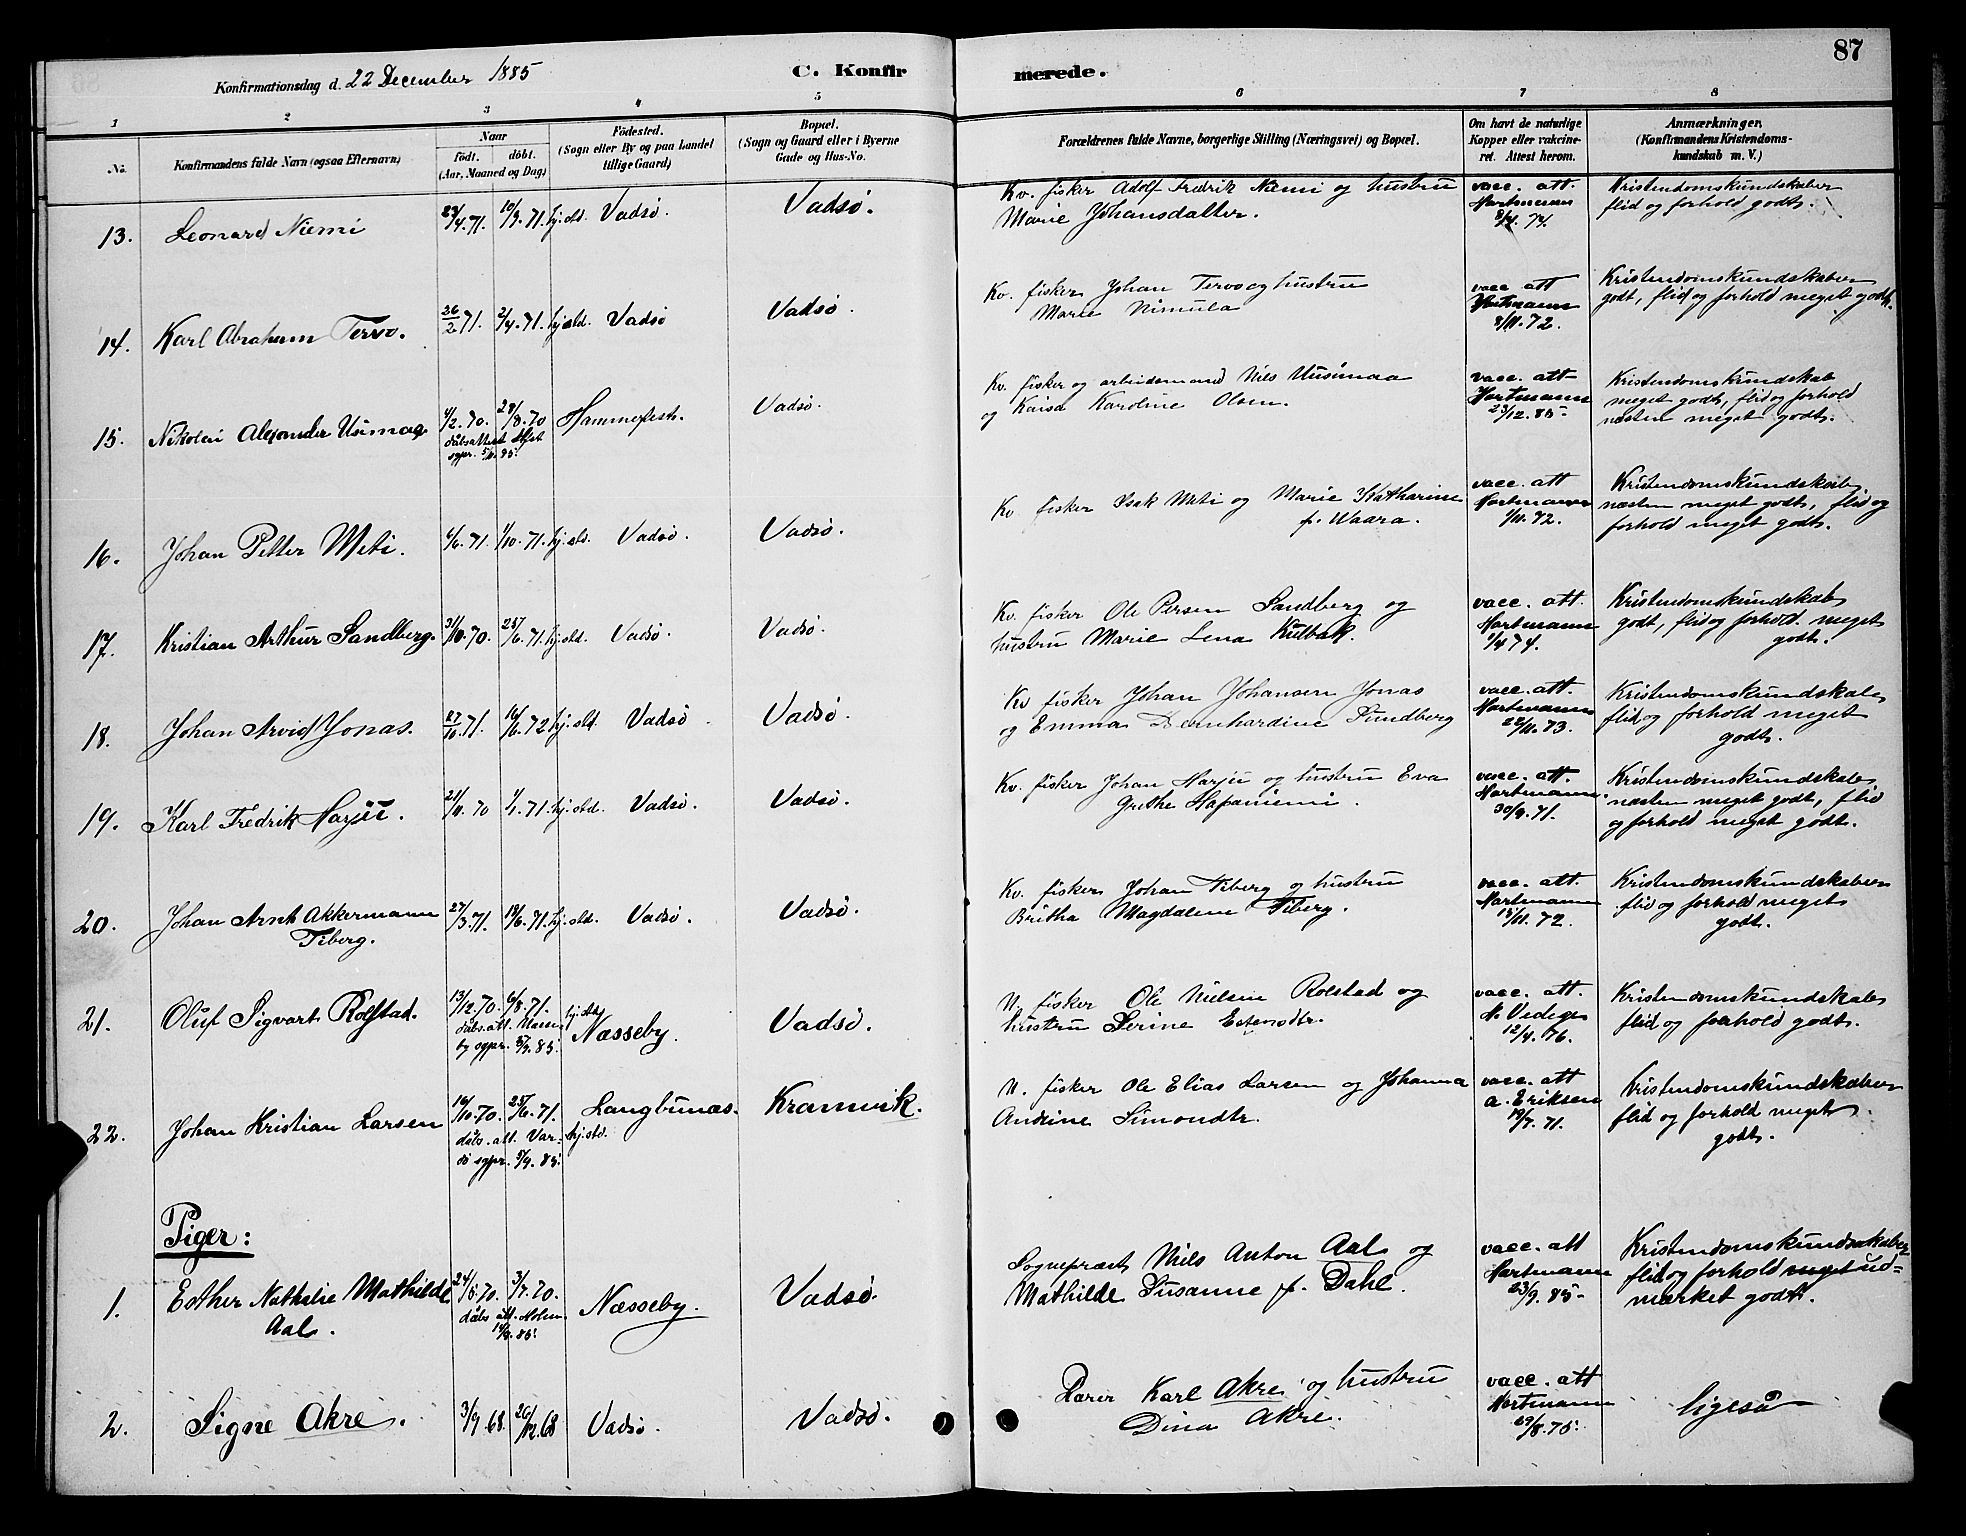 87
Konfirmationsdag d. 22 December 1885
C. Konfirmerede.
1 2 3 4 5 6 7 8
No.
Konfirmandens fulde Navn (ogsaa Efternavn)
Naar
født. døbt.
(Aar, Maaned og Dag)
Fødested.
(Sogn eller By og paa Landet
tillige Gaard)
Bopæl.
(Sogn og Gaard eller i Byerne
Gade og Hus-No.
Forældrenes fulde Navne, borgerlige Stilling (Næringsvei) og Bopæl.
Om havt de naturlige
Kopper eller vakcine-
ret. Attest herom.
Anmærkninger.
(Konfirmandens Kristendoms-
kundskab m. V.)
13. Leonard Niemi 23/4.71. 10/9.71. hj.std. Vadsø. Vadsø.
Kv. fisker Adolf Fredrik Niemi og hustru
Marie Johansdatter.
vacc. att.
Hartmann
8/4. 74.
Kristendomskundskaber
flid og forhold godt.
14. Karl Abraham Tervo. 26/2 71. 2/4.71. hj.std. Vadsø Vadsø.
Kv. fisker Johan Tervo og hustru
Marie Nimula
vacc att
Hartmann
8/11.72.
Kristendomskundskaben
godt, flid og forhold meget godt.
15. Nikolai Alexander Usimaa 4/2.70. 28/8.70 Hammerfest. Vadsø.
dåbsattest Hfest
sgpr. 5/11.85.
Kv. fisker og arbeidsmand Nils Uusimaa
og Kaisa Karoline Olsen.
vacc. att
Hartmann
23/12.85.
Kristendomskundskab
meget godt, flid og forhold
næsten meget godt.
16. Johan Petter Meti. 4/6.71. 1/10.71. hj.std. Vadsø. Vadsø.
Kv. fisker Isak Meti og Marie Katharine
f. Waara.
vacc. att
Hartmann
1/11.72.
Kristendomskundskab
næsten meget godt, flid og
forhold meget godt.
17. Kristian Arthur Sandberg. 31/10.70. 25/6.71. hj.std. Vadsø. Vadsø.
Kv. fisker Ole Persen Sandberg og
hustru Marie Lena Kulbak.
vacc. att.
Hartmann
1/4 74.
Kristendomskundskab
godt, flid og forhold meget
godt.
18. Johan Arvid Jonas. 27/10 71. 16/6.72 hj.std. Vadsø. Vadsø.
Kv fisker Johan Johansen Jonas
og Emma Bernhardine Sundberg
vacc. att.
Hartmann
22/11.73.
Kristendomskundskab
flid og forhold meget
godt.
19. Karl Fredrik Harju. 21/11.70 1/1.71. hj.std. Vadsø. Vadsø.
Kv. fisker Johan Harju og hustru Eva
Grethe Hapaniemi.
vacc. att.
Hartmann.
30/9.71.
Kristendomskundskab
næsten meget godt, flid
og forhold meget godt.
20. Johan Arnt Akkermann 27/3.71. 19/6.71. hj.std. Vadsø. Vadsø.
Tiberg.
Kv. fisker Johan Tiberg og hustru
Britha Magdalene Tiberg.
vacc. att.
Hartmann
15/11.72.
Kristendomskundskaben
flid og forhold meget
godt.
21. Oluf Sigvart Rolstad. 13/12.70. 6/8.71. hj.dbt Næsseby. Vadsø.
dåbs.att. Næsse-
by sgpr. 5/9.85.
N. fisker Ole Nielsen Rolstad og
hustru Serine Estensdtr.
vacc. att.
N. Vedege
12/4.76.
Kristendomskundskab
flid og forhold godt.
22. Johan Kristian Larsen 14/10.70. 25/6.71. Langbunæs. Kramvik.
hj.std.
dåbs.att. Var-
dø sgpr. 5/9.85.
N. fisker Ole Elias Larsen og Johanna
Andrine Simondtr.
vacc. att
A. Eriksen
19/7.71.
Kristendomskundskaben
flid og forhold meget
godt.
Piger:
1. Esther Nathalie Mathilde 24/5.70. 3/7.70. Næsseby. Vadsø.
Aal.
dåbs att. Holm.
14/9.85.
Sognepræst Nils Anton Aal og
Mathilde Susanne f. Dahl.
vacc. att
Hartmann
23/9.85.
Kristendomskundskaben
flid og forhold meget ud-
mærket godt.
2. Signe Akre. 3/9.68. 26/12.68 Vadsø. Vadsø.
Lærer Karl Akre og hustru
Dina Akre.
vacc. att
Hartmann
29/8.75.
ligeså